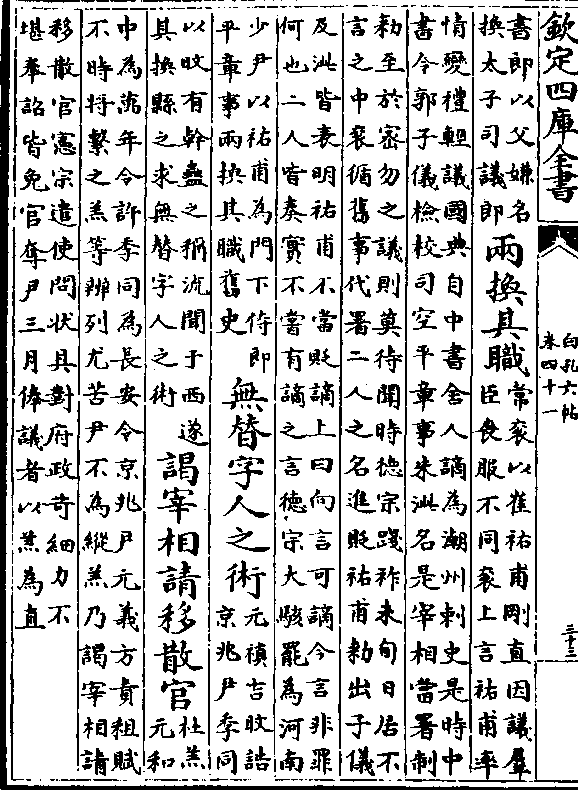 欽定四庫全書
白孔六帖
卷四十一
三十三
書郎以父嫌名
換太子司議郎
兩換其職
常袞以崔祐甫剛直因議羣
臣喪服不同袞上言祐甫率
情變禮輕議國典自中書舍人謫為潮州刺史是時中
書令郭子儀檢校司空平章事朱泚名是宰相當署制
敕至於宻勿之議則莫待聞時德宗踐祚未旬日居不
言之中袞循舊事代署二人之名進貶祐甫敕出子儀
及泚皆表明祐甫不當貶謫上曰向言可謫今言非罪
何也二人皆奏實不嘗有謫之言德宗大駭罷為河南
少尹以祐甫為門下侍郎
平章事兩換其職舊史
無替字人之術
元稹吉旼誥
京兆尹季同
以旼有幹蠱之稱流聞于西遂
其換縣之求無替字人之術
謁宰相請移散官
杜羔
元和
中為萬年令許季同為長安令京兆尹元義方責租賦
不時將繫之羔等辨列尤苦尹不為縱羔乃謁宰相請
移散官憲宗遣使問狀具對府政苛細力不
堪奉詔皆免官奪尹三月俸議者以羔為直